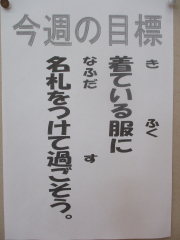 今週の目標
き ふく
着ている服に
なふだ す
名札をつけて過ごそう。